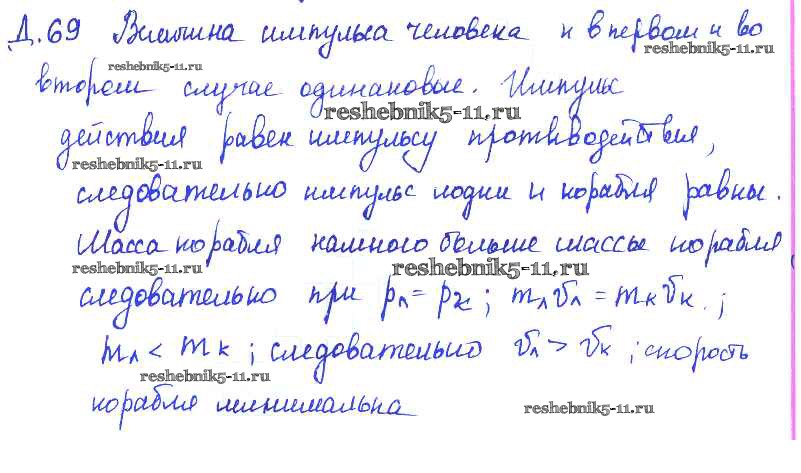 Д.69 Величина импульса человека и в первом и во
reshebnik5-11.ru
reshebnik5-11.ru
втором случае одинаковые. Импульс
reshebnik5-11.ru
действия равен импульсу противодействия,
reshebnik5-11.ru
следовательно импульс лодки и корабля равны.
Масса корабля намного больше массы корабля
reshebnik5-11.ru reshebnik5-11.ru
следовательно при pл = pк; mл vл = mк vк.;
mл < mк; следовательно vл > vк; скорость
reshebnik5-11.ru
корабля минимальна
reshebnik5-11.ru